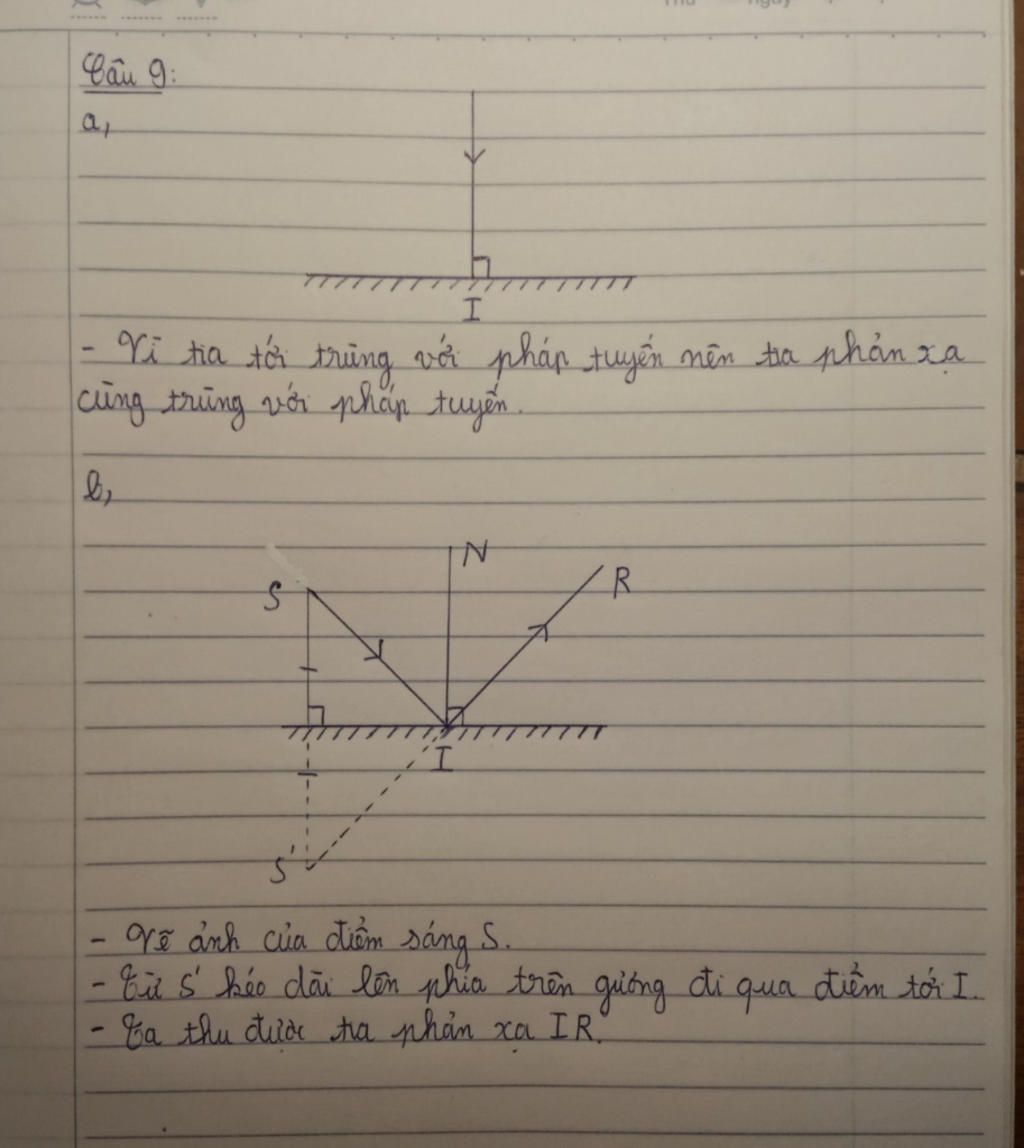 Thứ ngày
Câu 9:
a,
I
- Vì tia tới trùng với pháp tuyến nên tia phản xạ
cũng trùng với pháp tuyến.
b,
N
S
R
I
S'
- Vẽ ảnh của điểm sáng S.
- Từ S' kéo dài lên phía trên gương đi qua điểm tới I.
- Ta thu được tia phản xạ IR.